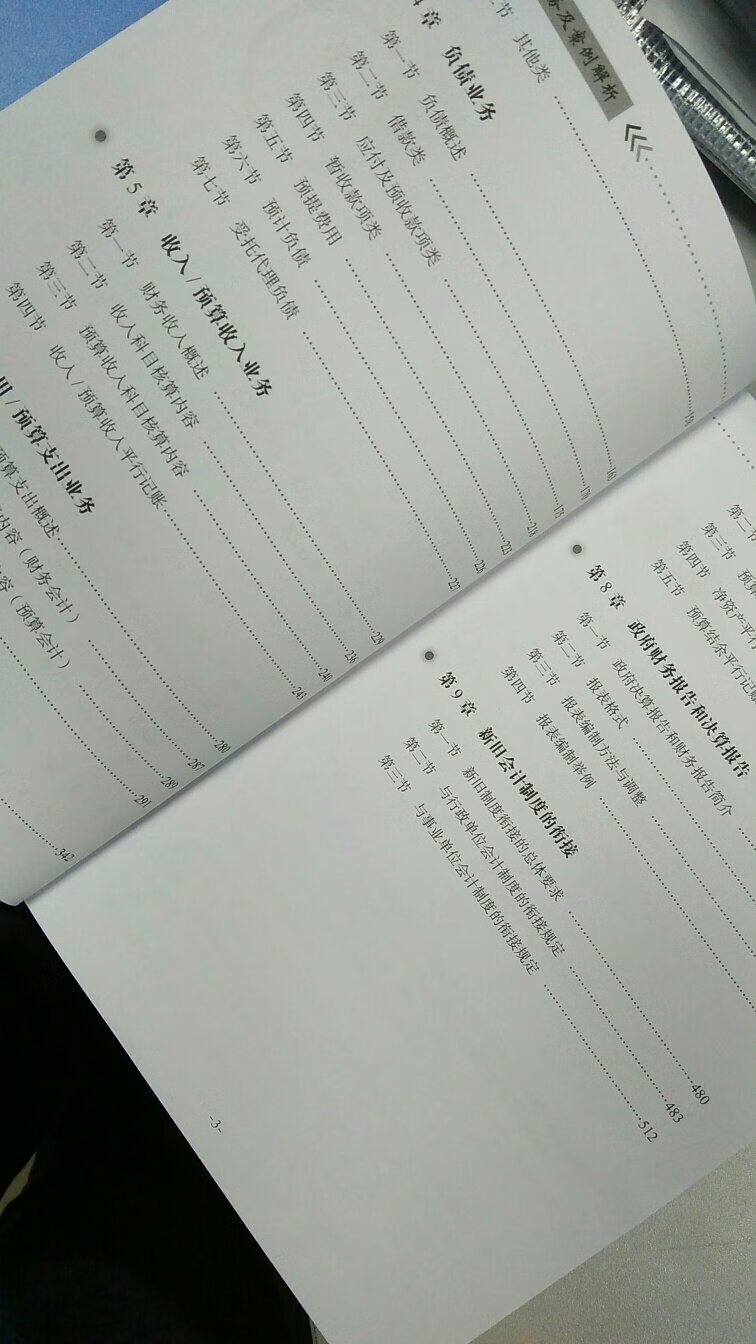 及案例解析
节 其他类
章 负债业务
第一节 负债概述 160
第二节 借款类 170
第三节 应付及预收款项类 175
第四节 暂收款项类 218
第五节 预提费用
第六节 预计负债 226
第七节 受托代理负债 227
第5章 收入/预算收入业务
第一节 财务收入概述 229
第二节 收入科目核算内容 236
第三节 预算收入科目核算内容 240
第四节 收入/预算收入平行记账 243
用/预算支出业务
预算支出概述 280
内容（财务会计） 287
容（预算会计） 289
291
342
第二节
第三节 预算
第四节 净资产平行
第五节 预算结余平行记账
第8章 政府财务报告和决算报告
第一节 政府决算报告和财务报告简介
第二节 报表格式
第三节 报表编制方法与调整
第四节 报表编制举例
第9章 新旧会计制度的衔接
第一节 新旧制度衔接的总体要求 480
第二节 与行政单位会计制度的衔接规定 483
第三节 与事业单位会计制度的衔接规定 512
-3-